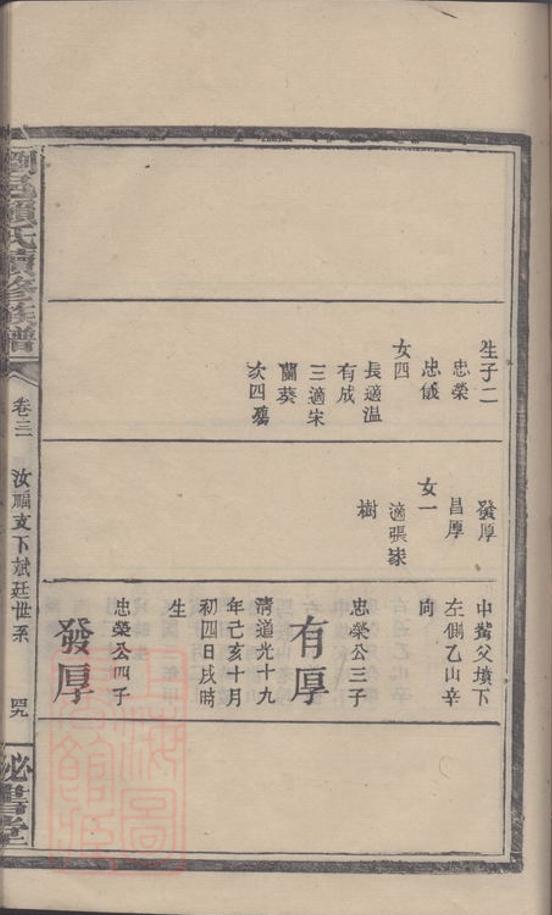 生子二
忠榮
忠儀
女四
長適温
有成
三適宋
蘭葵
次四殤
發厚
昌厚
女一
適張家
樹
中嘴父墳下
左側乙山辛
向
有厚
忠榮公三子
清道光十九
年己亥十月
初四日戌時
生
發厚
忠榮公四子
瀏邑賴氏續修族譜
卷三
汝福支下斌廷世系
四九